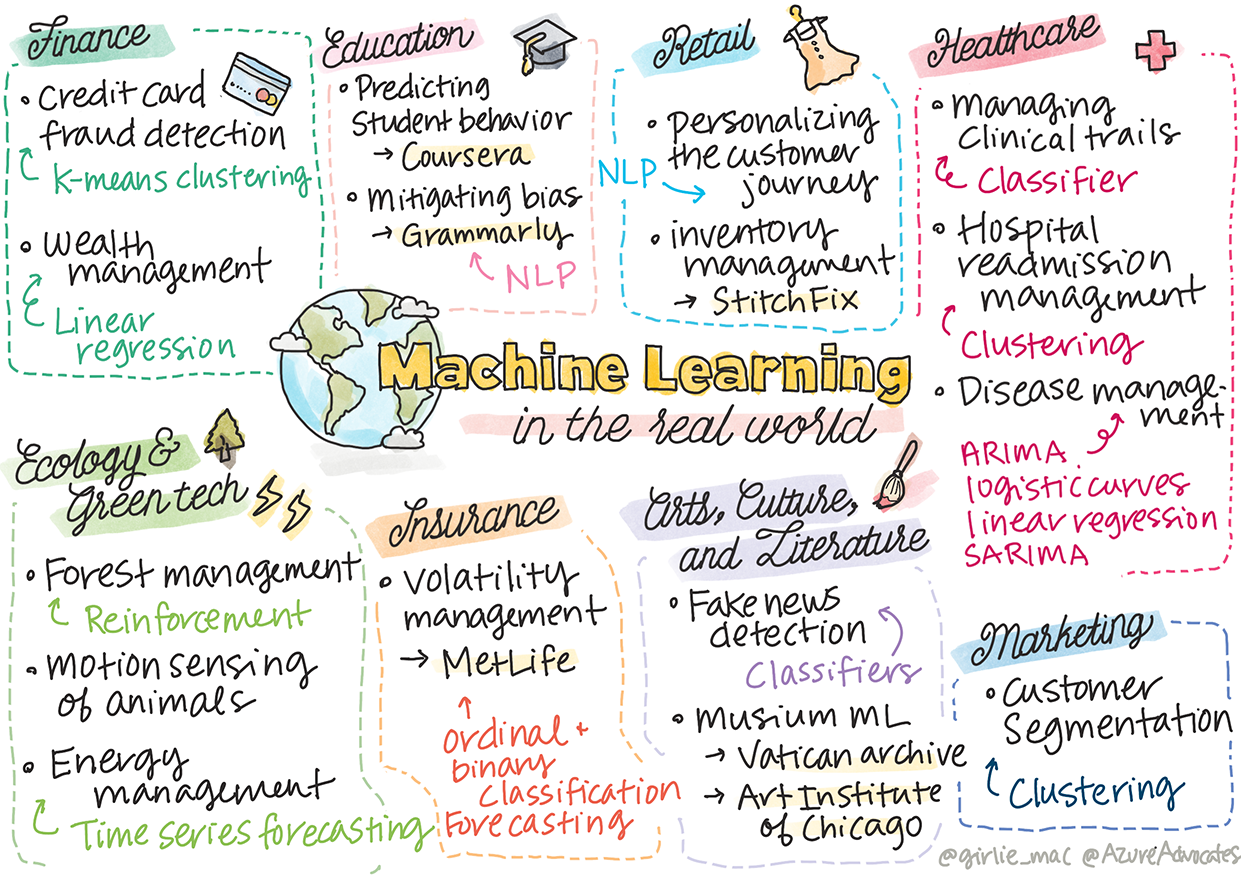 Finance
• Credit card
fraud detection
K-means clustering
• Wealth
management
Linear
regression
Education
• Predicting
Student behavior
→ Coursera
• Mitigating bias
→ Grammarly
NLP
Retail
• personalizing
the customer
journey
NLP
• inventory
managament
→ StitchFix
Healthcare
• managing
clinical trails
Classifier
• Hospital
readmission
management
Clustering
• Disease manage-
ment
ARIMA
logistic curves
linear regression
SARIMA
Machine Learning
in the real world
Ecology &
Green tech
• Forest management
Reinforcement
• motion sensing
of animals
• Energy
management
Time series forecasting
Insurance
• Volatility
management
→ MetLife
ordinal +
binary
classification
Forecasting
Arts, Culture,
and Literature
• Fake news
detection
Classifiers
• Musium ML
→ Vatican archive
→ Art Institute
of Chicago
Marketing
• Customer
Segmentation
Clustering
@girlie_mac @AzureAdvocates